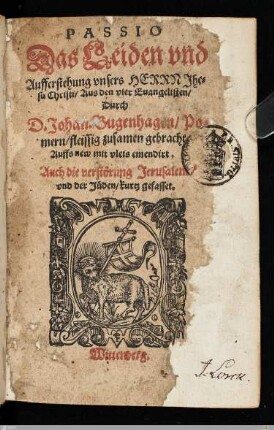 PASSIO
Das Leiden vnd
Aufferstehung vnsers HERRN Jhe-
su Christi / Aus den vier Euangelisten /
Durch
D. Johan Bugenhagen / Po-
mern / fleissig zusamen gebracht
Auffs new mit vleis emendirt.
Auch die verstörung Jerusalem
vnd der Jüden / kurtz gefasset.
Wittemberg.